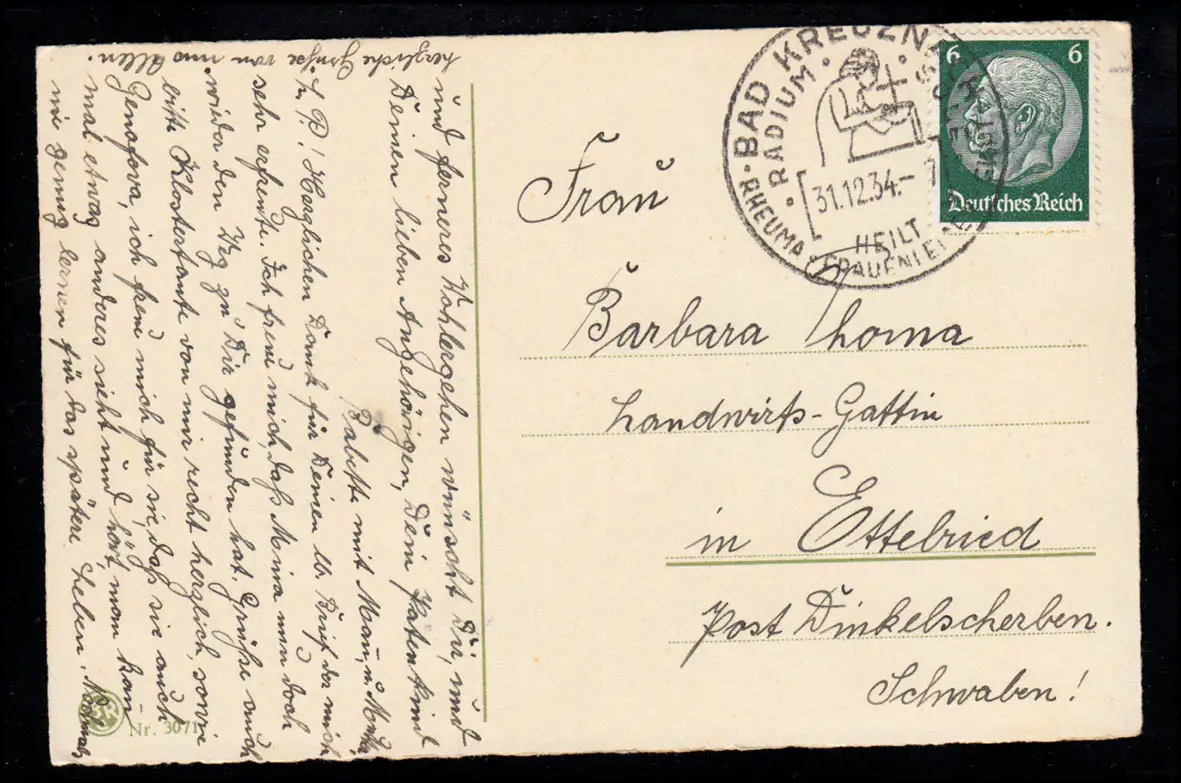 und ferneres Wohlergehen wünscht Dir, und
Deinen lieben Angehörigen, Dein Patenkind
Babette mit Mann, u.
P.! Herzlichen Dank für Deinen lb. Brief der mich
sehr erfreute. Ich freue mich, daß Mina nun doch
wieder den Weg zu Dir gefunden hat. Grüße auch
bitte Klostertante von mir recht herzlich, sowie
Genofeva, ich freue mich für sie, daß sie auch
mal etwas anderes sieht und hört, man kann
nie genug lernen für das spätere Leben. Nochmals
herzliche Grüße von uns Allen.
Nr. 3071
BAD KREUZNACH
RADIUM
31.12.34.-
HEILT
RHEUMA FRAUENLEI
6 6
Deutsches Reich
Frau
Barbara Thoma
Landwirts-Gattin
in Ettelried
Post Dinkelscherben.
Schwaben!